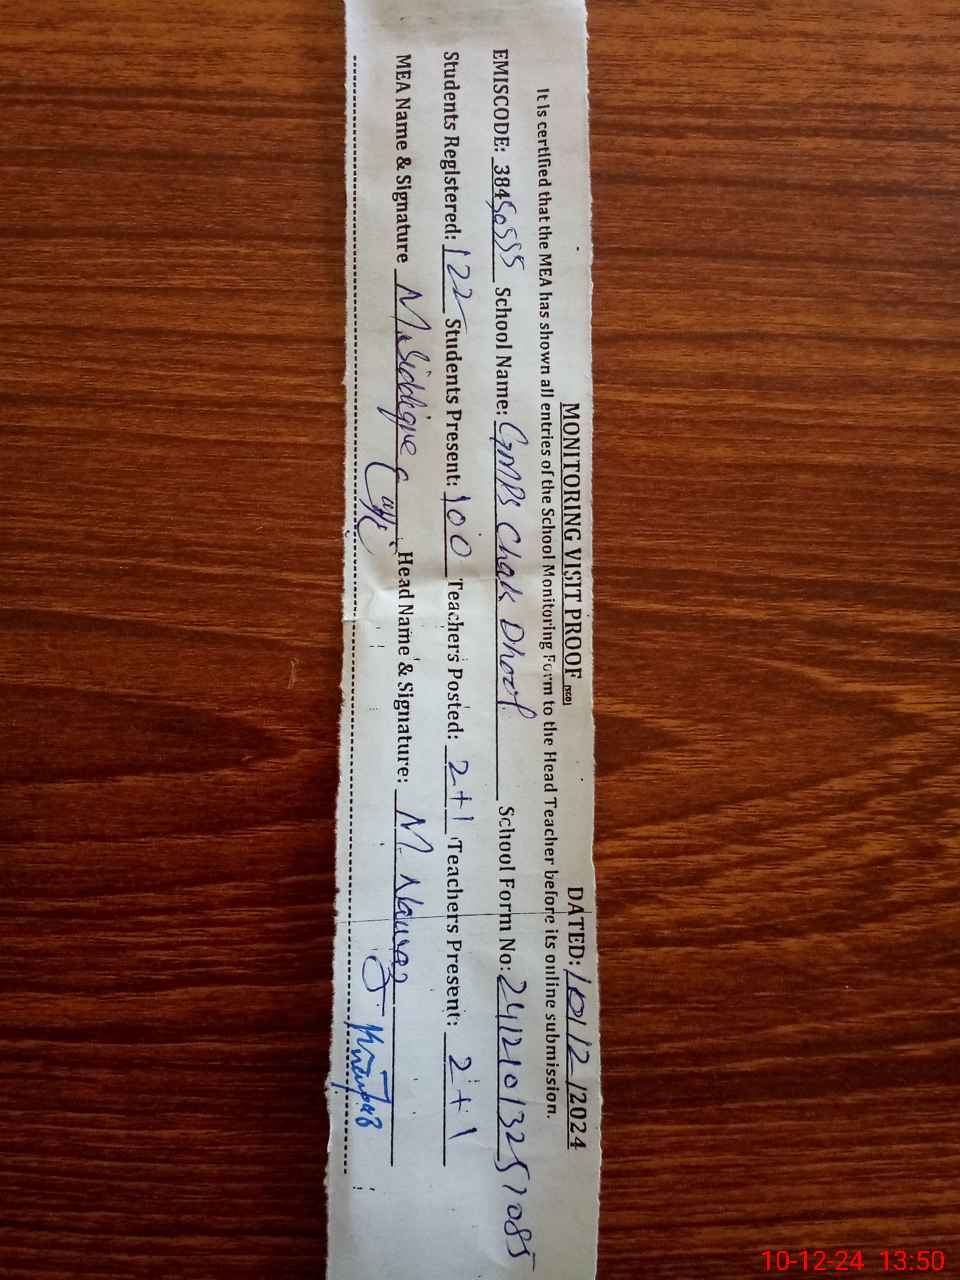 MONITORING VISIT PROOF DATED: 10/12/2024
It is certified that the MEA has shown all entries of the School Monitoring Form to the Head Teacher before its online submission.
EMISCODE: 38450555 School Name: GMPS Chak Dhool School Form No: 241210132571085
Students Registered: 122 Students Present: 100 Teachers Posted: 2+1 Teachers Present: 2+1
MEA Name & Signature M. Siddique Head Name & Signature: M. Nawaz
10-12-24 13:50